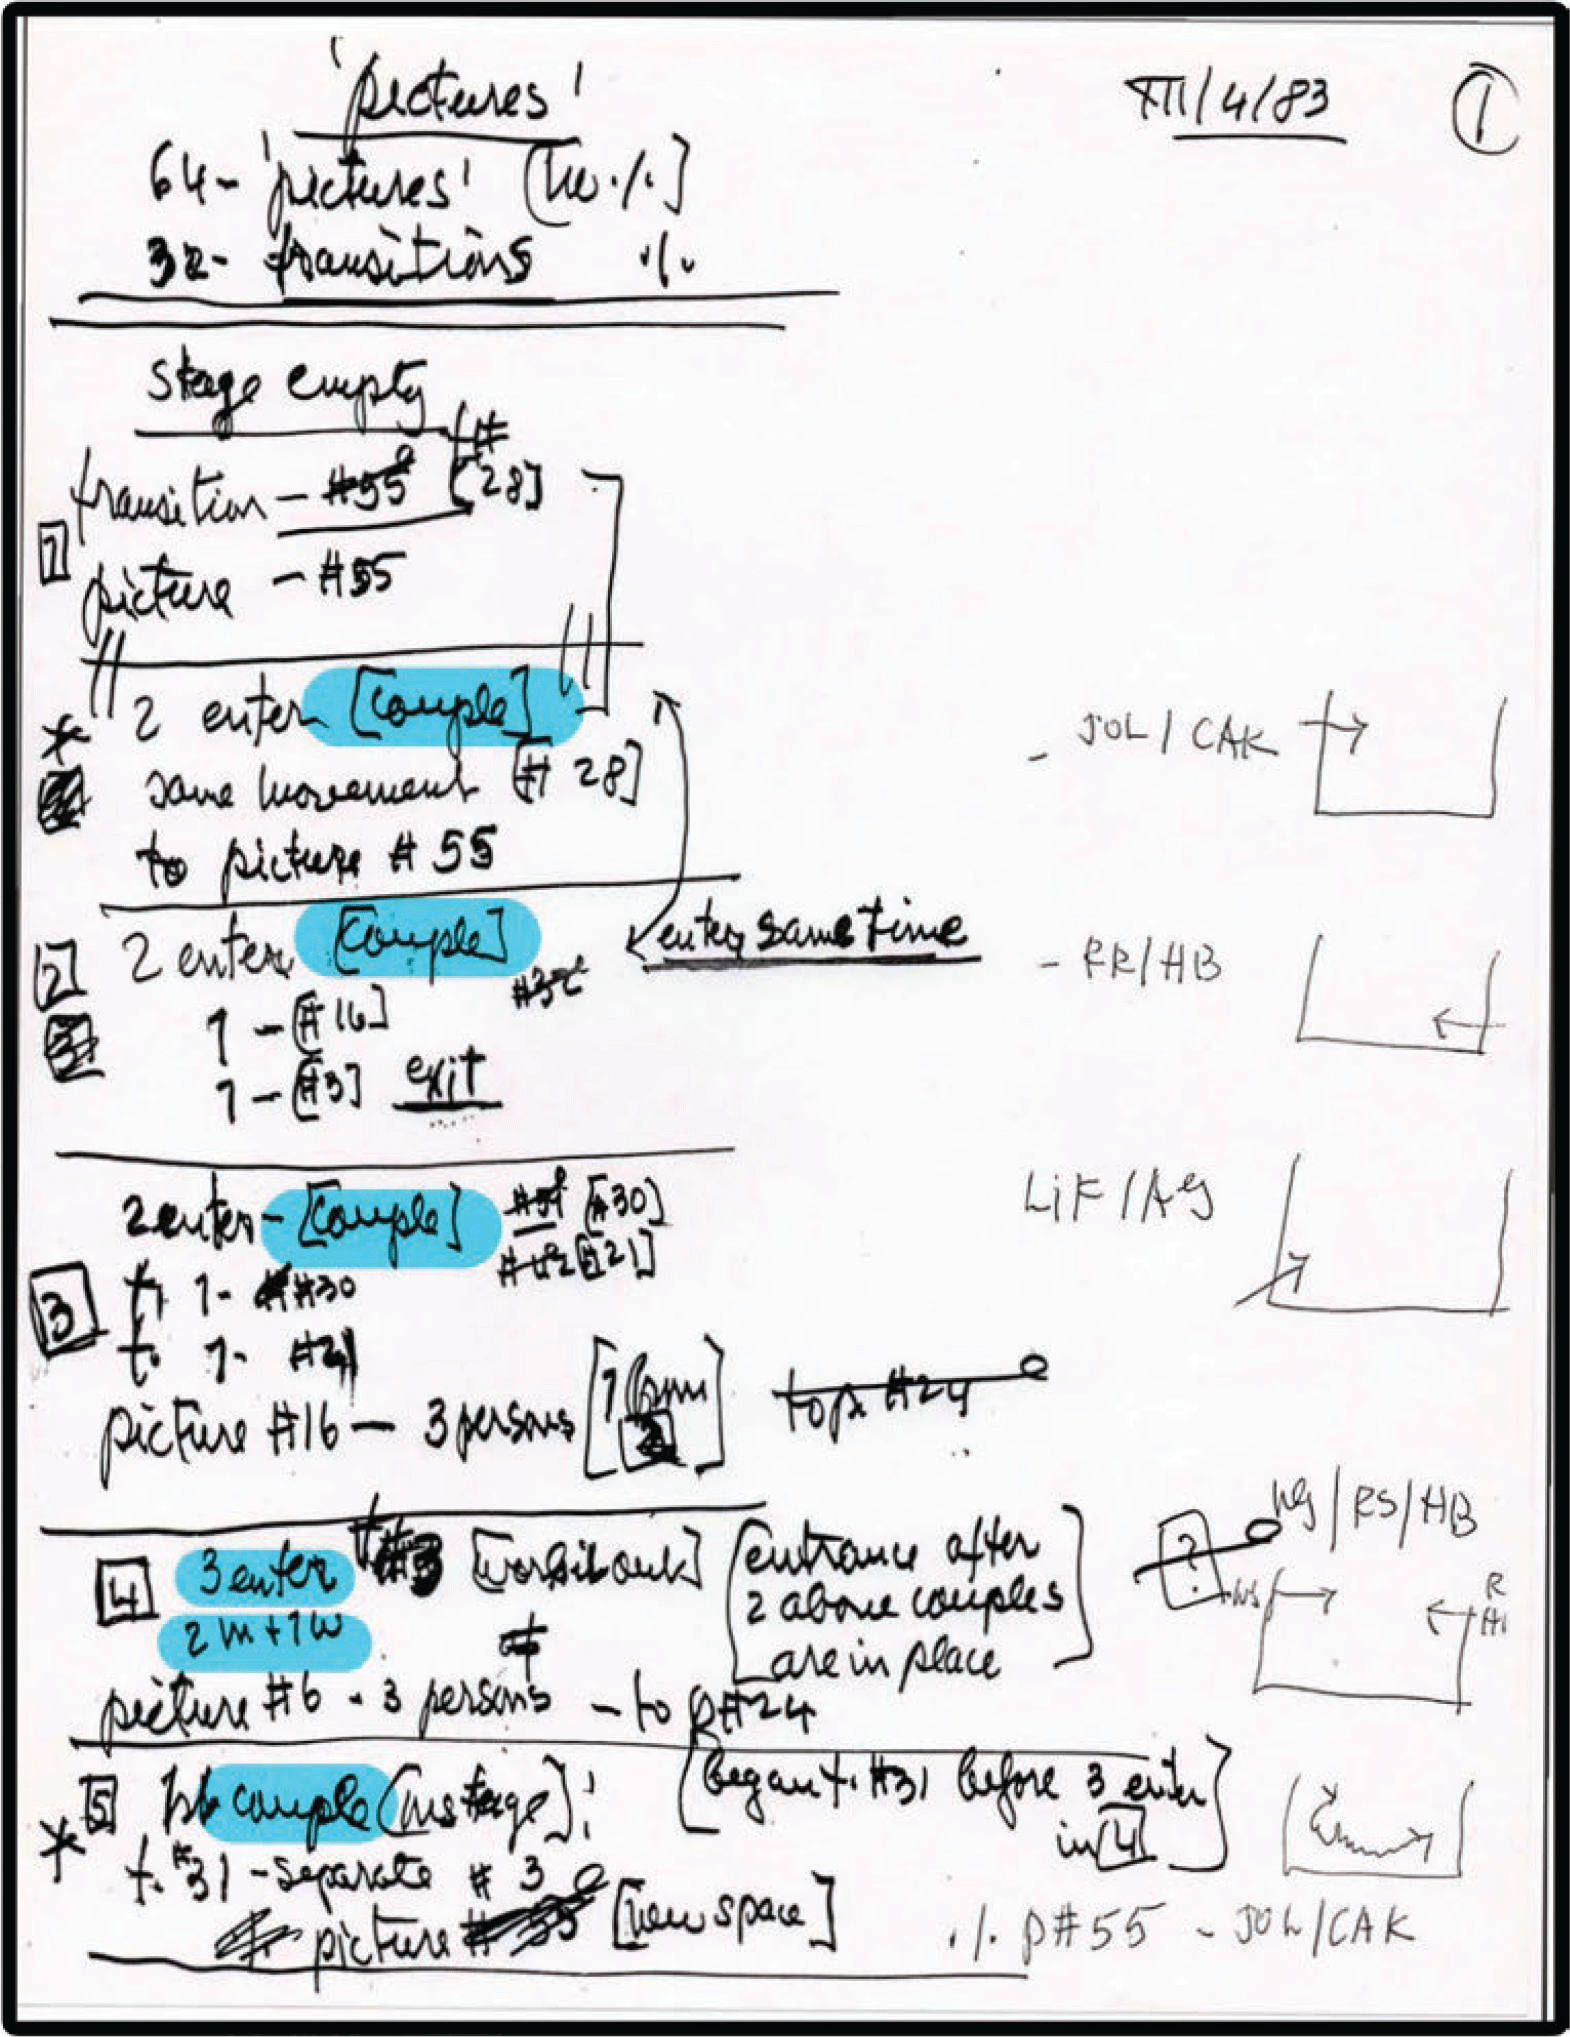 'pictures'
III/4/83
1
64 - 'pictures'
32 - transitions ·/.
stage empty
transition - #55 [28]
1
picture - #55
2 enter [couple]
same movement [# 28]
to picture # 55
- JOL / CAK
2
2 enter [couple]
enter same time
- RR/HB
1 - [#16]
1 - [#3] exit
2 enter - [couple] [#30]
[#21]
3
t. 1 - #30
t. 1 - #21
picture #16 - 3 persons
to p. #24
/RS/HB
4
3 enter t#3
[entrance after
2 above couples
are in place]
?
2m + 1w
picture #6 - 3 persons - to p#24
5
couple (onstage)
[began t. #31 before 3 enter
in 4]
t. #31 - separate # 3
picture # 55 [new space]
·/. p#55 - JOL/CAK